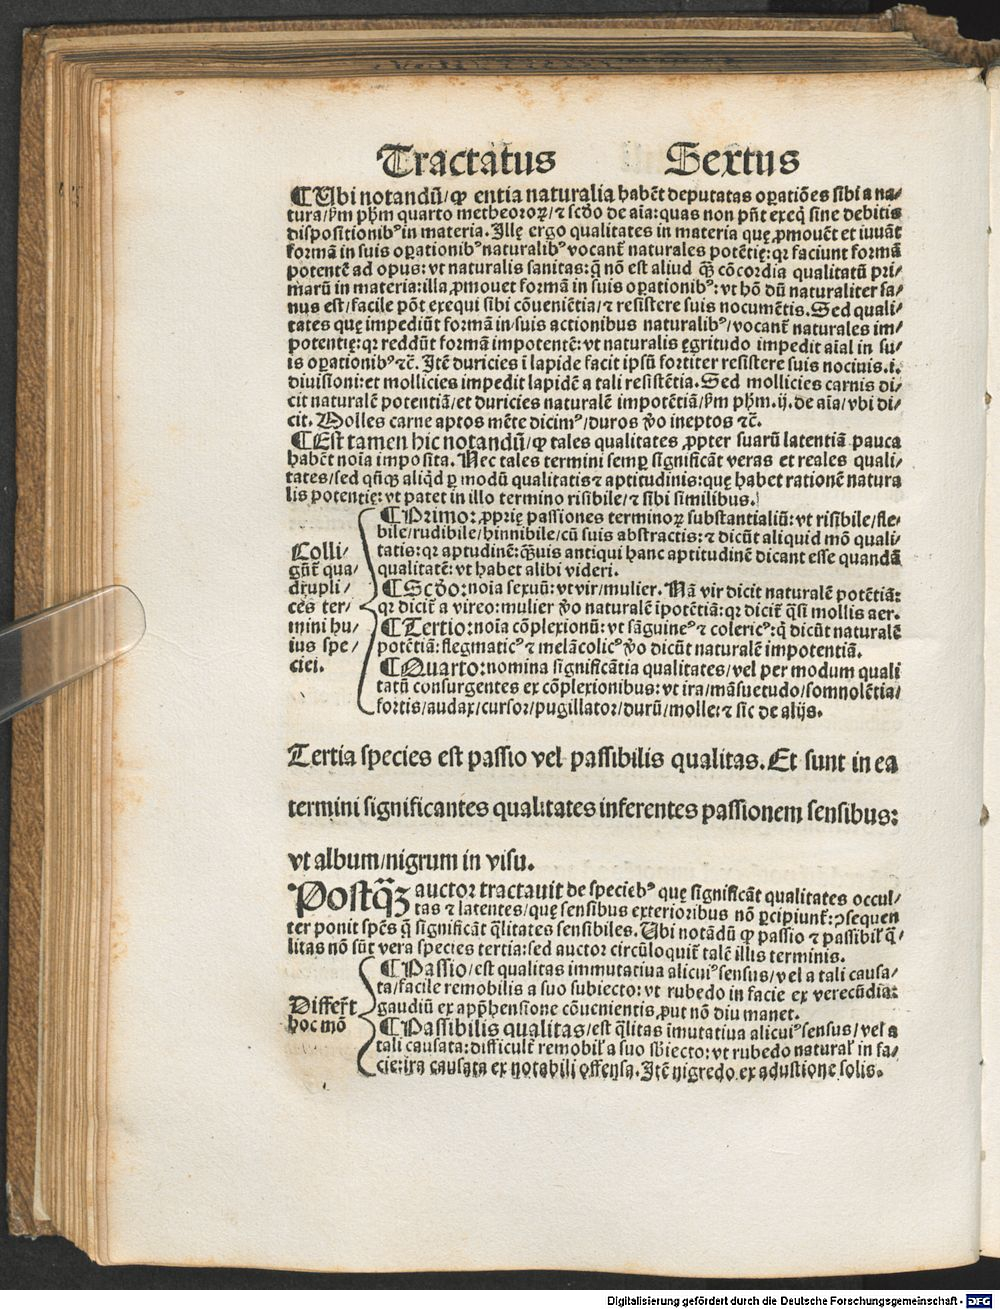 Tractatus Sextus
¶Ubi notandū/ꝙ entia naturalia habēt deputatas oꝑatiōes sibi a na⸗
tura/ẜm pħm quarto metheoroꝝ/⁊ scḋo de aīa: quas non pn̄t exeq̄ sine debitis
dispositionibꝰ in materia. Ille ergo qualitates in materia que ꝓmouēt et iuuāt
formā in suis oꝑationibꝰ naturalibꝰ vocant̄ naturales potētię: qꝛ faciunt formā
potentē ad opus: vt naturalis sanitas: q̄ nō est aliud ꝙ̄ cōcordia qualitatū pri⸗
marū in materia: illa ꝓmouet formā in suis oꝑationibꝰ: vt hō dū naturaliter sa⸗
nus est/facile pōt exequi sibi cōueniētia/⁊ resistere suis nocumētis. Sed quali⸗
tates quę impediūt formā in suis actionibus naturalibꝰ/vocant̄ naturales im⸗
potentię: qꝛ reddūt formam impotentē: vt naturalis ęgritudo impedit aīal in su⸗
is oꝑationibꝰ ⁊c̄. Itē duricies ī lapide facit ipsū fortiter resistere suis nociuis .i.
diuisioni: et mollicies impedit lapidē a tali resistētia. Sed mollicies carnis di⸗
cit naturalē potentiā/et duricies naturalē impotētiā/ẜm pħm .ij. de aīa/vbi di⸗
cit. Molles carne aptos mēte dicimꝰ/duros ꝟo ineptos ⁊c̄.
¶Est tamen hic notandū/ꝙ tales qualitates ꝓpter suarū latentiā pauca
habēt noīa imposita. Nec tales termini semꝑ significāt veras et reales quali⸗
tates/sed qn̄ꝙ aliqd ꝑ modū qualitatis ⁊ aptitudinis: quę habet rationē natura
lis potentię: vt patet in illo termino risibile/⁊ sibi similibus.
Colli⸗
gūt̄ qua⸗
drupli⸗
ces ter⸗
mini hu⸗
ius spe⸗
ciei.
¶Primo: ꝓprię passiones terminoꝝ substantialiū: vt risibile/fle⸗
bile/rudibile/hinnibile/cū suis abstractis: ⁊ dicūt aliquid mō quali⸗
tatis: qꝛ aptudinē: ꝙ̄uis antiqui hanc aptitudinē dicant esse quandā
qualitatē: vt habet alibi videri.
¶Scḋo: noīa sexuū: vt vir/mulier. Nā vir dicit naturalē potētiā:
qꝛ dicit̄ a vireo: mulier ꝟo naturalē īpotētiā: qꝛ dicit̄ q̄si mollis aer.
¶Tertio: noīa cōplexionū: vt sāguineꝰ ⁊ colericꝰ: q̄ dicūt naturalē
potētiā: flegmaticꝰ ⁊ melācolicꝰ ꝟo dicūt naturalē impotentiā.
¶Quarto: nomina significātia qualitates/vel per modum quali
tatū consurgentes ex cōplexionibus: vt ira/māsuetudo/somnolētia/
fortis/audax/cursor/pugillator/durū/molle: ⁊ sic de alijs.
Tertia species est passio vel passibilis qualitas. Et sunt in ea
termini significantes qualitates inferentes passionem sensibus:
vt album/nigrum in visu.
Postꝙ̄ auctor tractauit de speciebꝰ quę significāt qualitates occul⸗
tas ⁊ latentes/quę sensibus exterioribus nō ꝑcipiunt̄: ꝯsequen
ter ponit spēs q̄ significāt q̄litates sensibiles. Ubi notādū ꝙ passio ⁊ passibił q̄⸗
litas nō sūt vera species tertia: sed auctor circūloquit̄ talē illis terminis.
Differt̄
hoc mō
¶Passio/est qualitas immutatiua alicuiꝰ sensus/vel a tali causa⸗
ta/facile remobilis a suo subiecto: vt rubedo in facie ex verecūdia:
gaudiū ex app̄hensione cōuenientis/ꝓut nō diu manet.
¶Passibilis qualitas/est q̄litas īmutatiua alicuiꝰ sensus/vel a
tali causata: difficult̄ remobił a suo sb̄iecto: vt rubedo naturał in fa⸗
cie: ira causata ex notabili offensa. Itē nigredo ex adustione solis.
Digitalisierung gefördert durch die Deutsche Forschungsgemeinschaft - DFG